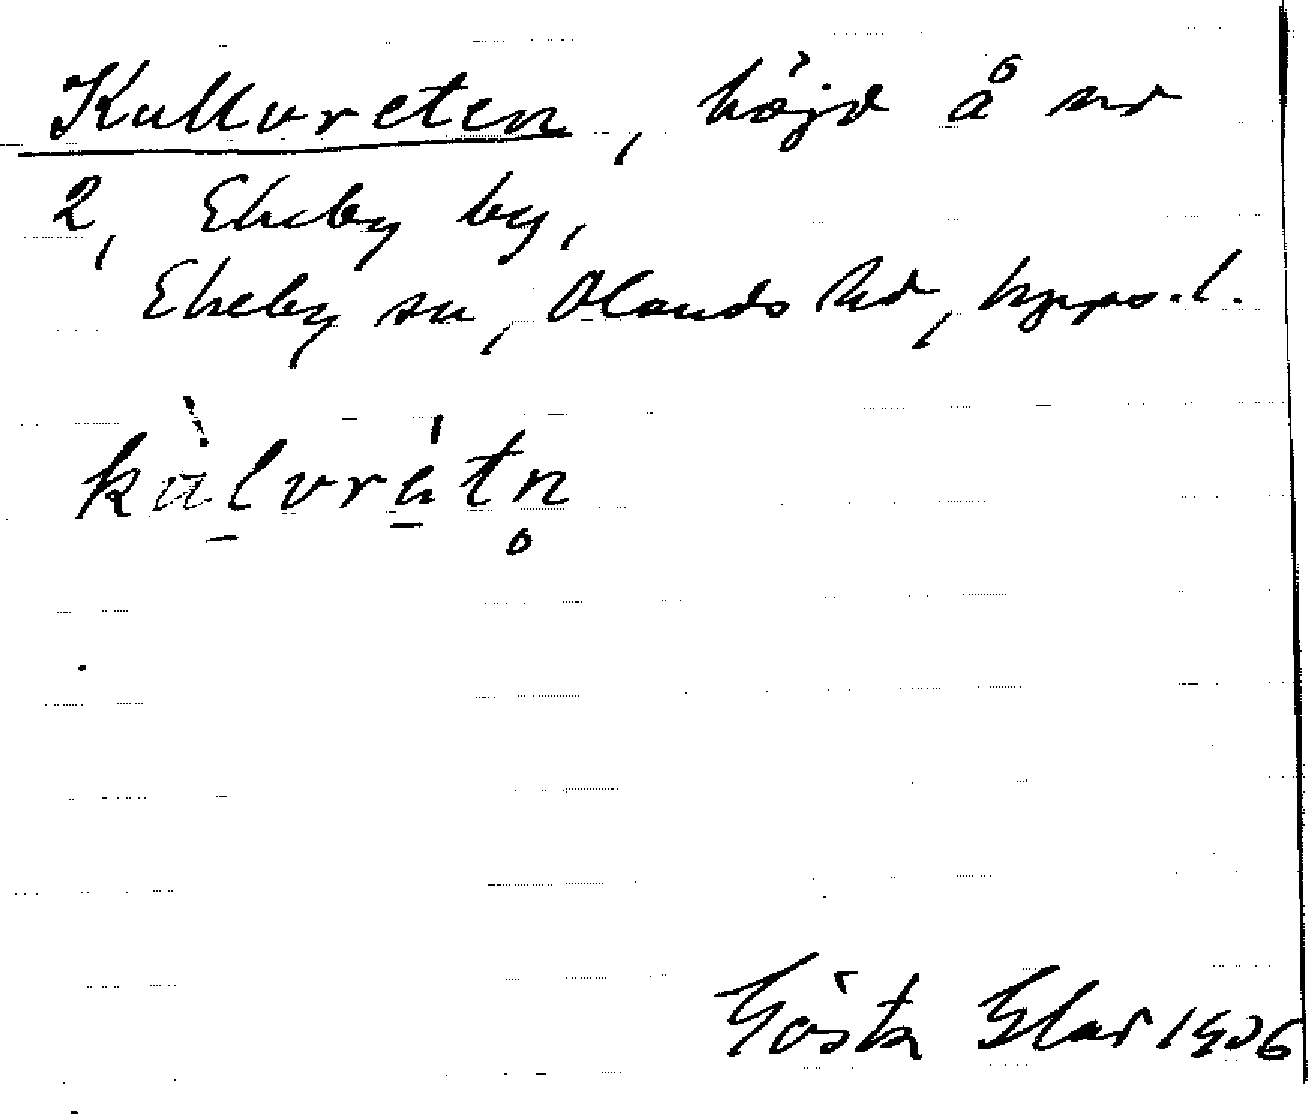 Kallvreten, höjd å nr
2, Ekeby by,
Ekeby sn, Olands hd, Upps. l.
kàlvrètn̥
Gösta Elar 1936